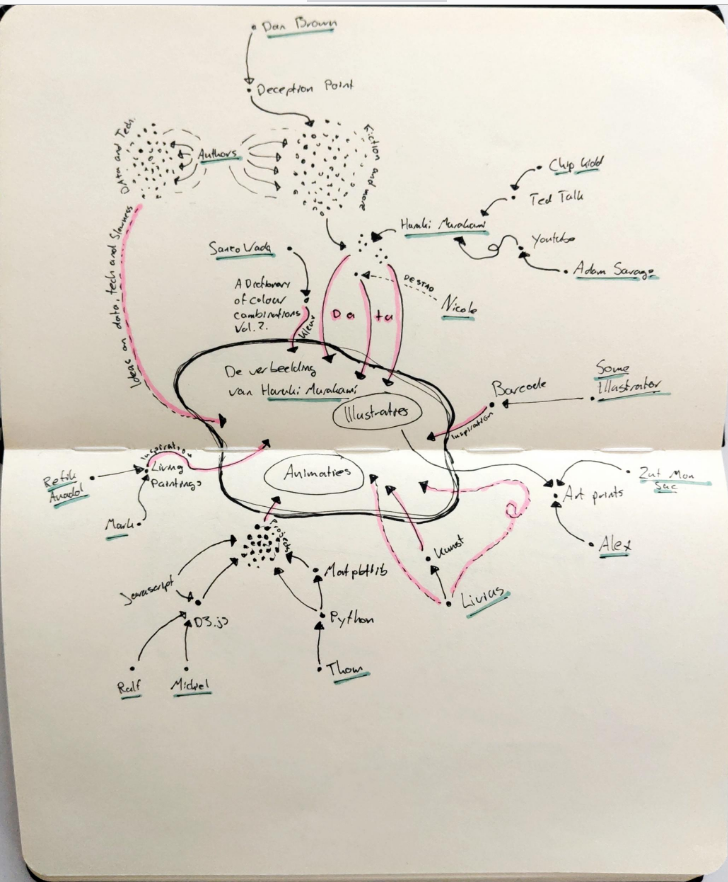 Dan Brown
Deception Point
Data and Tech
Authors
Fiction and more
Chip Kidd
Ted Talk
Haruki Murakami
Youtube
Adam Savage
Sanzo Wada
A Dictionary
of colour
combinations
Vol. 2.
Kleur
Da ta
DESTAD
Nicole
Ideas on data, tech and
De verbeelding
van Haruki Murakami
Illustraties
Barcode
Some
Illustrator
Inspiration
Inspiration
Living
Paintings
Refik
Anadol
Mark
Animaties
Art prints
Alex
Projects
Kunst
Livius
Javascript
D3.js
Matplotlib
Python
Ralf
Michiel
Thom